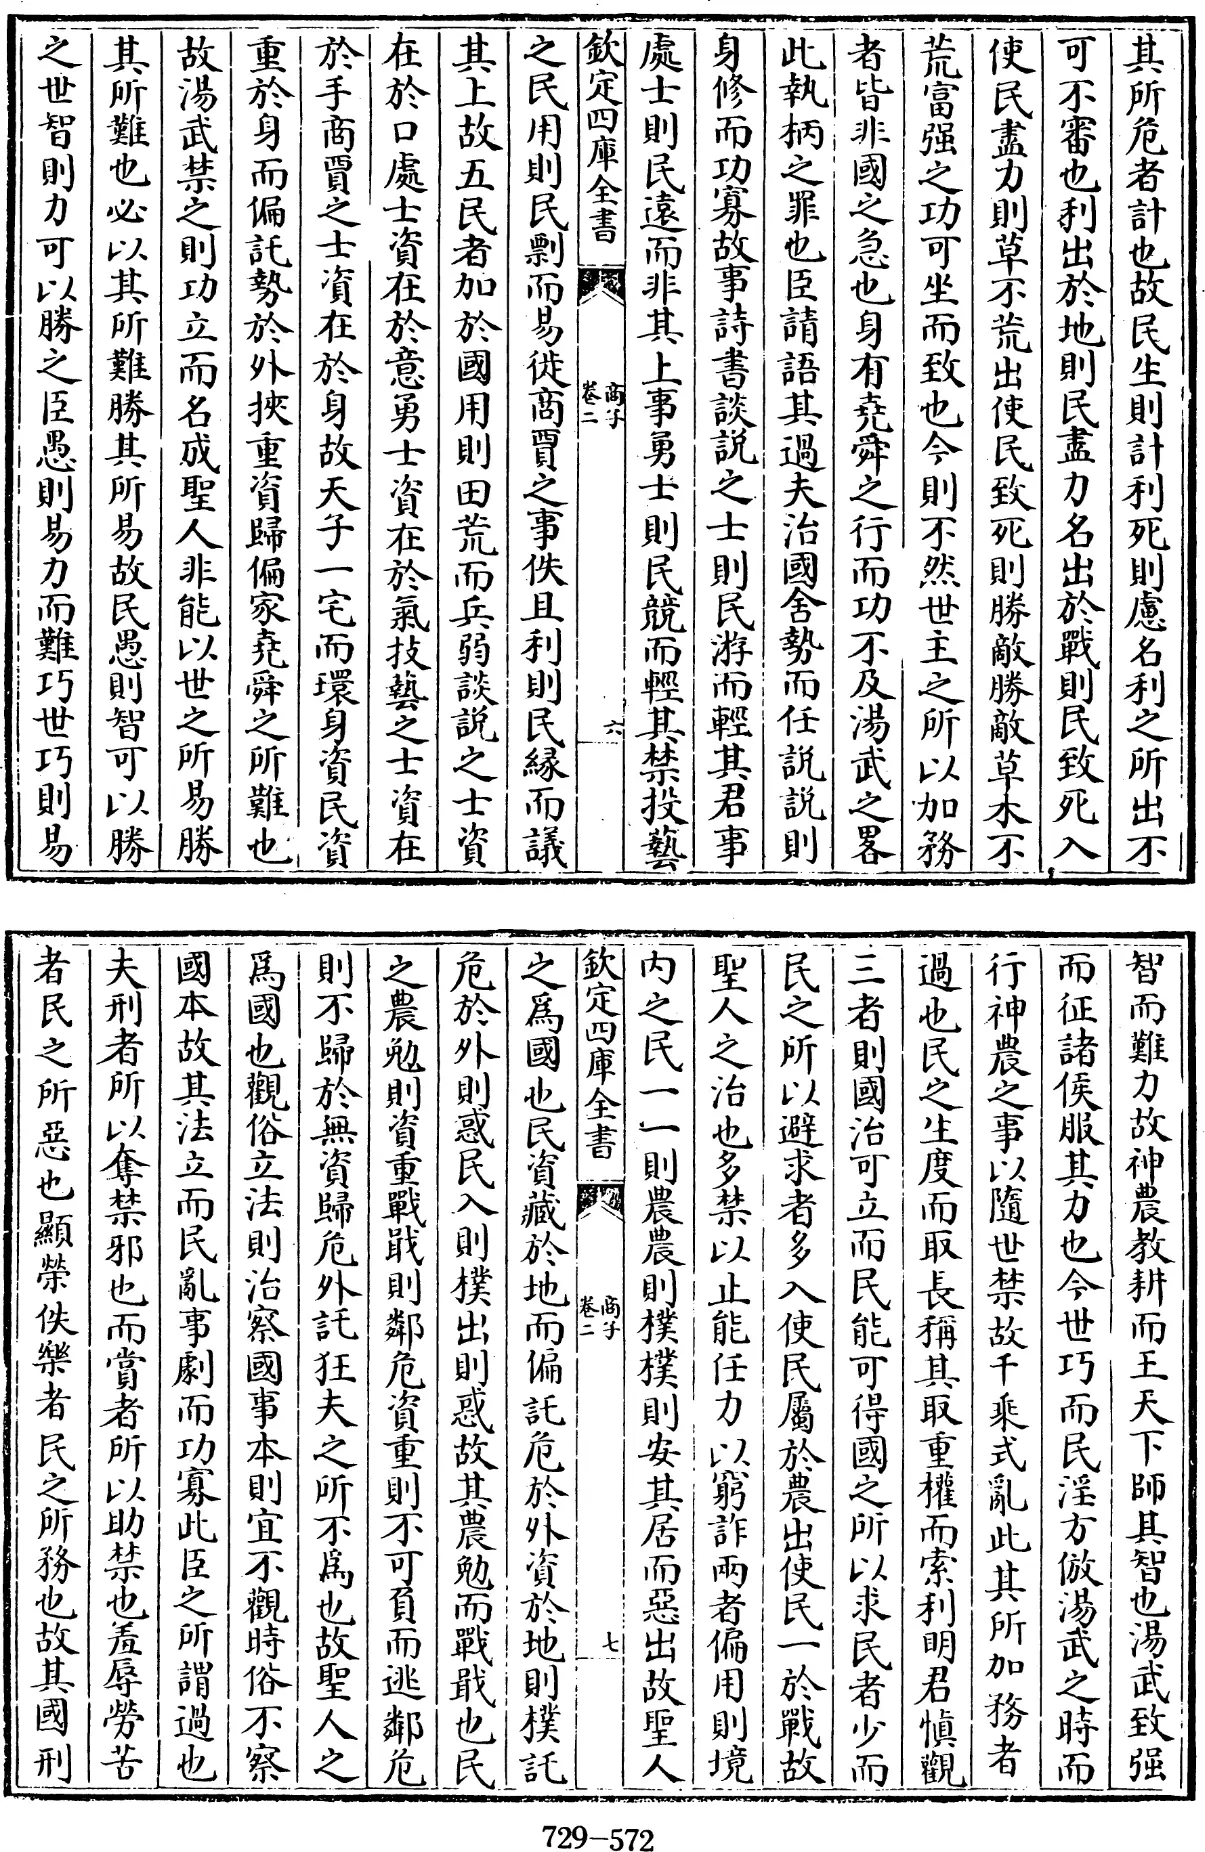 其所危者計也故民生則計利死則慮名利之所出不
可不審也利出於地則民盡力名出於戰則民致死入
使民盡力則草不荒出使民致死則勝敵勝敵草木不
荒富强之功可坐而致也今則不然世主之所以加務
者皆非國之急也身有堯舜之行而功不及湯武之畧
此執柄之罪也臣請語其過夫治國舍勢而任説説則
身修而功寡故事詩書談説之士則民游而輕其君事
處士則民遠而非其上事勇士則民競而輕其禁投藝
欽定四庫全書
商子
卷二
六
之民用則民剽而易徙商賈之事佚且利則民縁而議
其上故五民者加於國用則田荒而兵弱談説之士資
在於口處士資在於意勇士資在於氣技藝之士資在
於手商賈之士資在於身故天子一宅而環身資民資
重於身而偏託勢於外挾重資歸偏家堯舜之所難也
故湯武禁之則功立而名成聖人非能以世之所易勝
其所難也必以其所難勝其所易故民愚則智可以勝
之世智則力可以勝之臣愚則易力而難巧世巧則易
智而難力故神農教耕而王天下師其智也湯武致强
而征諸侯服其力也今世巧而民淫方倣湯武之時而
行神農之事以隨世禁故千乘式亂此其所加務者
過也民之生度而取長稱其取重權而索利明君慎觀
三者則國治可立而民能可得國之所以求民者少而
民之所以避求者多入使民屬於農出使民一於戰故
聖人之治也多禁以止能任力以窮詐兩者偏用則境
内之民一一則農農則樸樸則安其居而惡出故聖人
欽定四庫全書
商子
卷二
七
之爲國也民資藏於地而偏託危於外資於地則樸託
危於外則惑民入則樸出則惑故其農勉而戰戢也民
之農勉則資重戰戢則鄰危資重則不可負而逃鄰危
則不歸於無資歸危外託狂夫之所不爲也故聖人之
爲國也觀俗立法則治察國事本則宜不觀時俗不察
國本故其法立而民亂事劇而功寡此臣之所謂過也
夫刑者所以奪禁邪也而賞者所以助禁也羞辱勞苦
者民之所惡也顯榮佚樂者民之所務也故其國刑
729-572